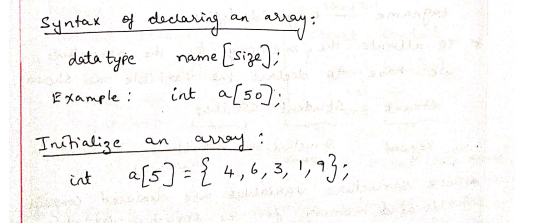 Syntax of declaring an array:
data type name [size];
Example: int a[50];
Initialize an array:
int a[5] = { 4, 6, 3, 1, 9};